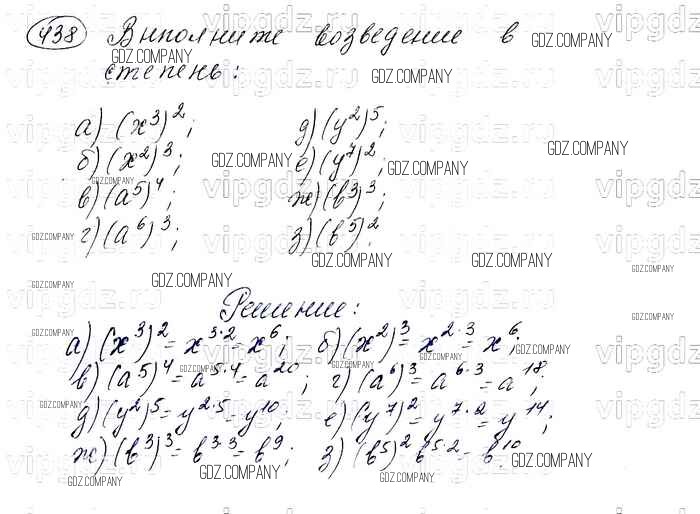 438 Выполните возведение в
степень:
а) (x³)²; д) (y²)⁵;
б) (x²)³; е) (y⁷)²,
в) (a⁵)⁴; ж) (b³)³;
г) (a⁶)³; з) (b⁵)².
Решение:
а) (x³)² = x³·² = x⁶; б) (x²)³ = x²·³ = x⁶;
в) (a⁵)⁴ = a⁵·⁴ = a²⁰; г) (a⁶)³ = a⁶·³ = a¹⁸;
д) (y²)⁵ = y²·⁵ = y¹⁰; е) (y⁷)² = y⁷·² = y¹⁴;
ж) (b³)³ = b³·³ = b⁹; з) (b⁵)² b⁵·² = b¹⁰.
vipgdz.ru
GDZ.COMPANY